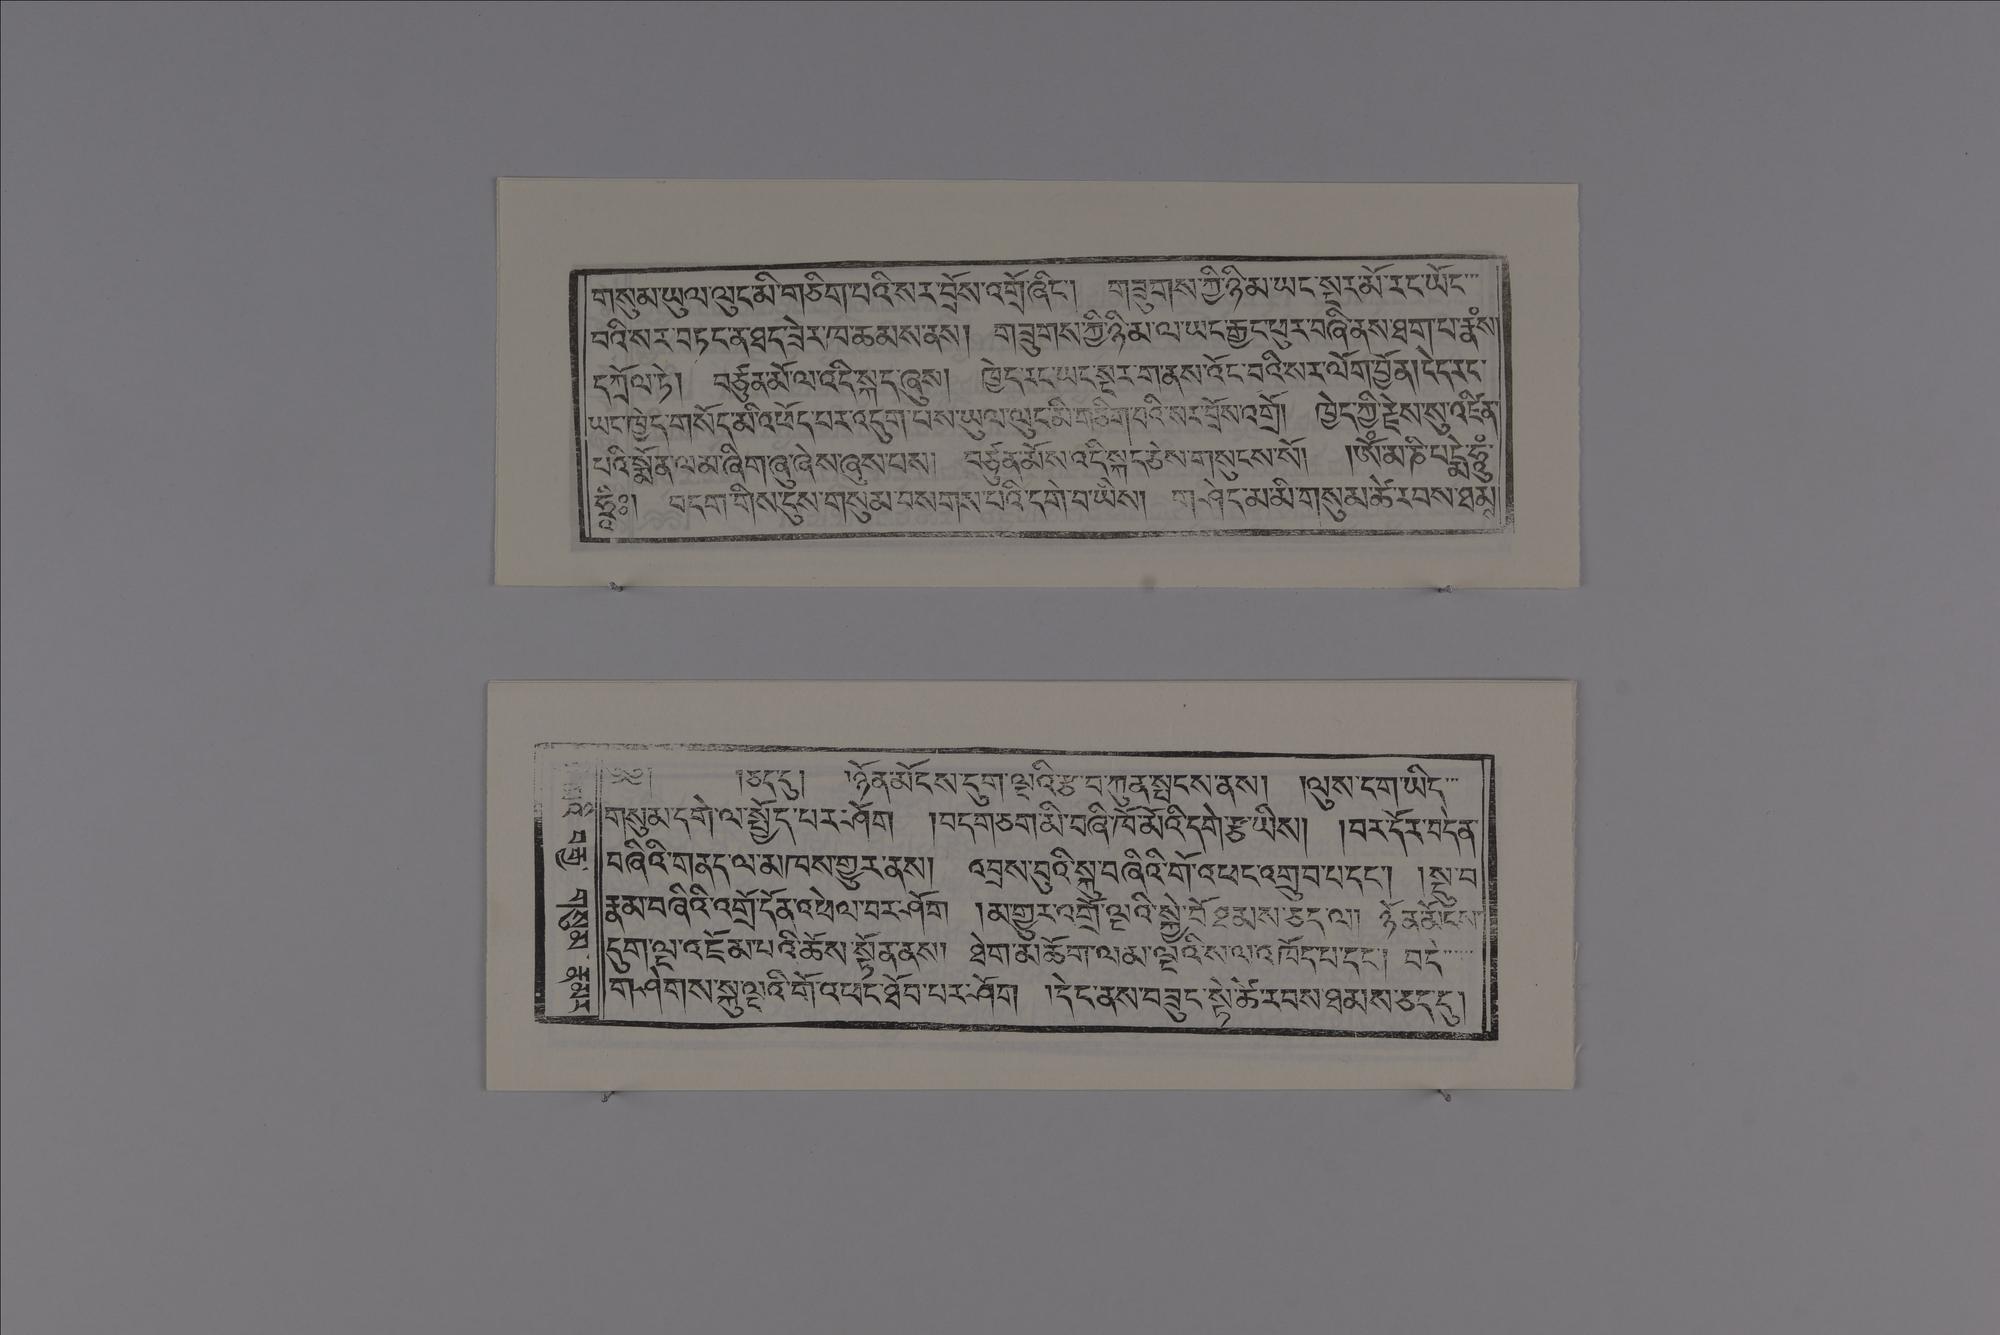 གསུམ་ཡུལ་ལུང་མི་གཅིག་པའི་སར་བྲོས་འགྲོ་ཞིང་། གཟུགས་ཀྱི་ཉི་མ་ཡང་སྔར་མོ་རང་ཡོང་
བའི་ས་ར་བཏང་ན་ཐད་ཟེར་ཁ་ཆམས་ནས། གཟུགས་ཀྱི་ཉི་མ་ལ་ཡང་རྒྱང་ཕུར་བཞི་ནས་ཐག་པ་རྣམས
དཀྲོལ་ཏེ། བཙུན་མོ་ལ་འདི་སྐད་ཞུས། ཁྱེད་རང་ཡང་སྔར་གནས་འོང་བའི་སར་ལོག་བྱོན། ངེད་རང་
ཡང་ཁྱེད་གསོད་མི་འཕོད་པར་འདུག་པས་ཡུལ་ལུང་མི་གཅིག་པའི་སར་བྲོས་འགྲོ། ཁྱེད་ཀྱི་རྗེས་སུ་འཛིན་
པའི་སྨོན་ལམ་ཞིག་ཞུ་ཞེས་ཞུས་པས། བཙུན་མོས་འདི་སྐད་ཅེས་གསུངས་སོ། །ཨོཾ་མ་ཎི་པདྨེ་ཧཱུྃ་
ཧྲཱིཿ བདག་གིས་དུས་གསུམ་བསགས་པའི་དགེ་བ་ཡིས། གཤེད་མ་མི་གསུམ་ཚེ་རབས་ཐམ
༄༅། །ཅད་དུ། །ཉོན་མོངས་དུག་ལྔའི་རྩ་བ་ཀུན་སྤངས་ནས། །ལུས་ངག་ཡིད་
གསུམ་དགེ་ལ་སྤྱོད་པར་ཤོག །བདག་ཅག་མི་བཞི་ཁོ་མོའི་དགེ་རྩ་ཡིས། །བར་དོར་བདེན་
བཞིའི་གནད་ལ་མཁས་གྱུར་ནས། འབྲས་བུའི་སྐུ་བཞིའི་གོ་འཕང་འགྲུབ་པ་དང་། །སྤྲུ་བ
རྣམ་བཞིའི་འགྲོ་དོན་འཕེལ་བར་ཤོག །མ་གྱུར་འགྲོ་ལྔའི་སྐྱེ་བོ་ཐམས་ཅད་ལ། ཉོན་མོངས་
དུག་ལྔ་འཇོམ་པའི་ཆོས་སྟོན་ནས། ཐེག་མཆོག་ལམ་ལྔའི་ས་ལ་འཁོད་པ་དང་། བདེ་
གཤེགས་སྐུ་ལྔའི་གོ་འཕང་ཐོབ་པར་ཤོག །དེ་ནས་བཟུང་སྟེ་ཚེ་རབས་ཐམས་ཅད་དུ།